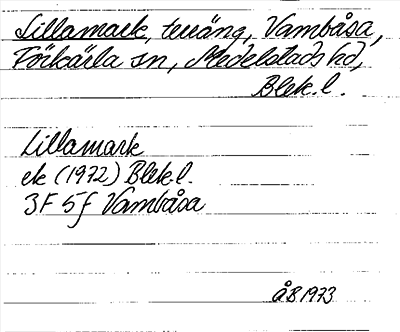 Lillamark, terräng, Vambåsa,
Förkärla sn, Medelstads hd,
Blek. l.
Lillamark
ek (1972) Blek. l.
3F 5f Vambåsa
ÅB 1973